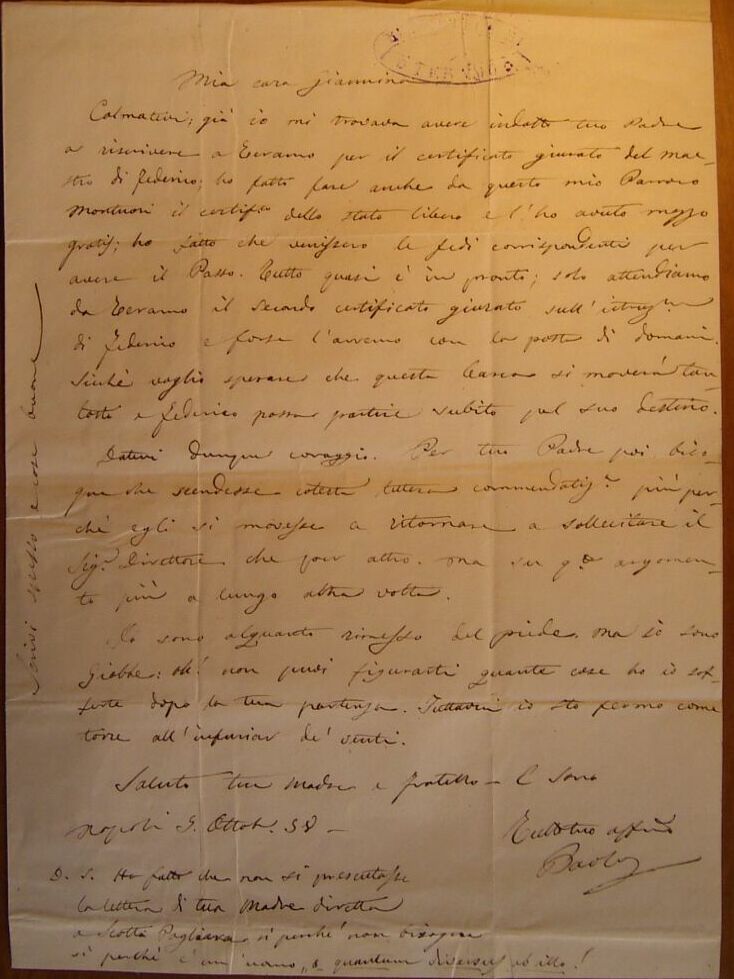 Mia cara Giannina
Calmatevi; già io mi trovava avere indotto tuo Padre
a riscrivere a Teramo per il certificato giurato del mae-
stro di Federico; ho fatto fare anche da questo mio Parroco
Montuori il certifco dello stato libero e l'ho avuto mezzo
gratis; ho fatto che venissero le fedi corrispondenti per
avere il Passo. Tutto quasi è in pronto; solo attendiamo
da Teramo il secondo certificato giurato sull'
di Federico e forse l'avremo con la posta di domani.
Sicchè voglio sperare che questa barca si moverà tan-
tosto e Federico possa partire subito pel suo destino.
Datevi dunque coraggio. Per tuo Padre poi biso-
gna che scendesse cotesta lettera più per-
chè egli si movesse a ritornare a sollecitare il
Sigr Direttore che per altro. Ma su qto argomen-
to più a lungo altra volta.
Io sono alquanto rimesso del piede. Ma io sono
Giobbe: oh! non puoi figurarti quante cose ho io sof-
ferte dopo la tua partenza. Tuttavia io sto fermo come
torre all'infuriar de' venti.
Saluto tua Madre e fratello — E sono
Napoli 9. Ottob. 58 —
Tutto tuo affmo
Paolo
P. S. Ho fatto che non si presentasse
la lettera di tua Madre diretta
a Scotti Pagliara, sì perchè non bisogna
sì perchè è un uomo quantum ab illo!
Scrivi spesso e cose buone